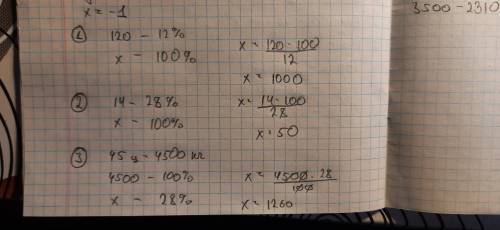 x = -1
3500 - 2310
① 120 - 12%
x - 100%
x = 120 · 100 / 12
x = 1000
② 14 - 28%
x - 100%
x = 14 · 100 / 28
x = 50
③ 45 ц = 4500 кг
4500 - 100%
x - 28%
x = 4500 · 28 / 100
x = 1260